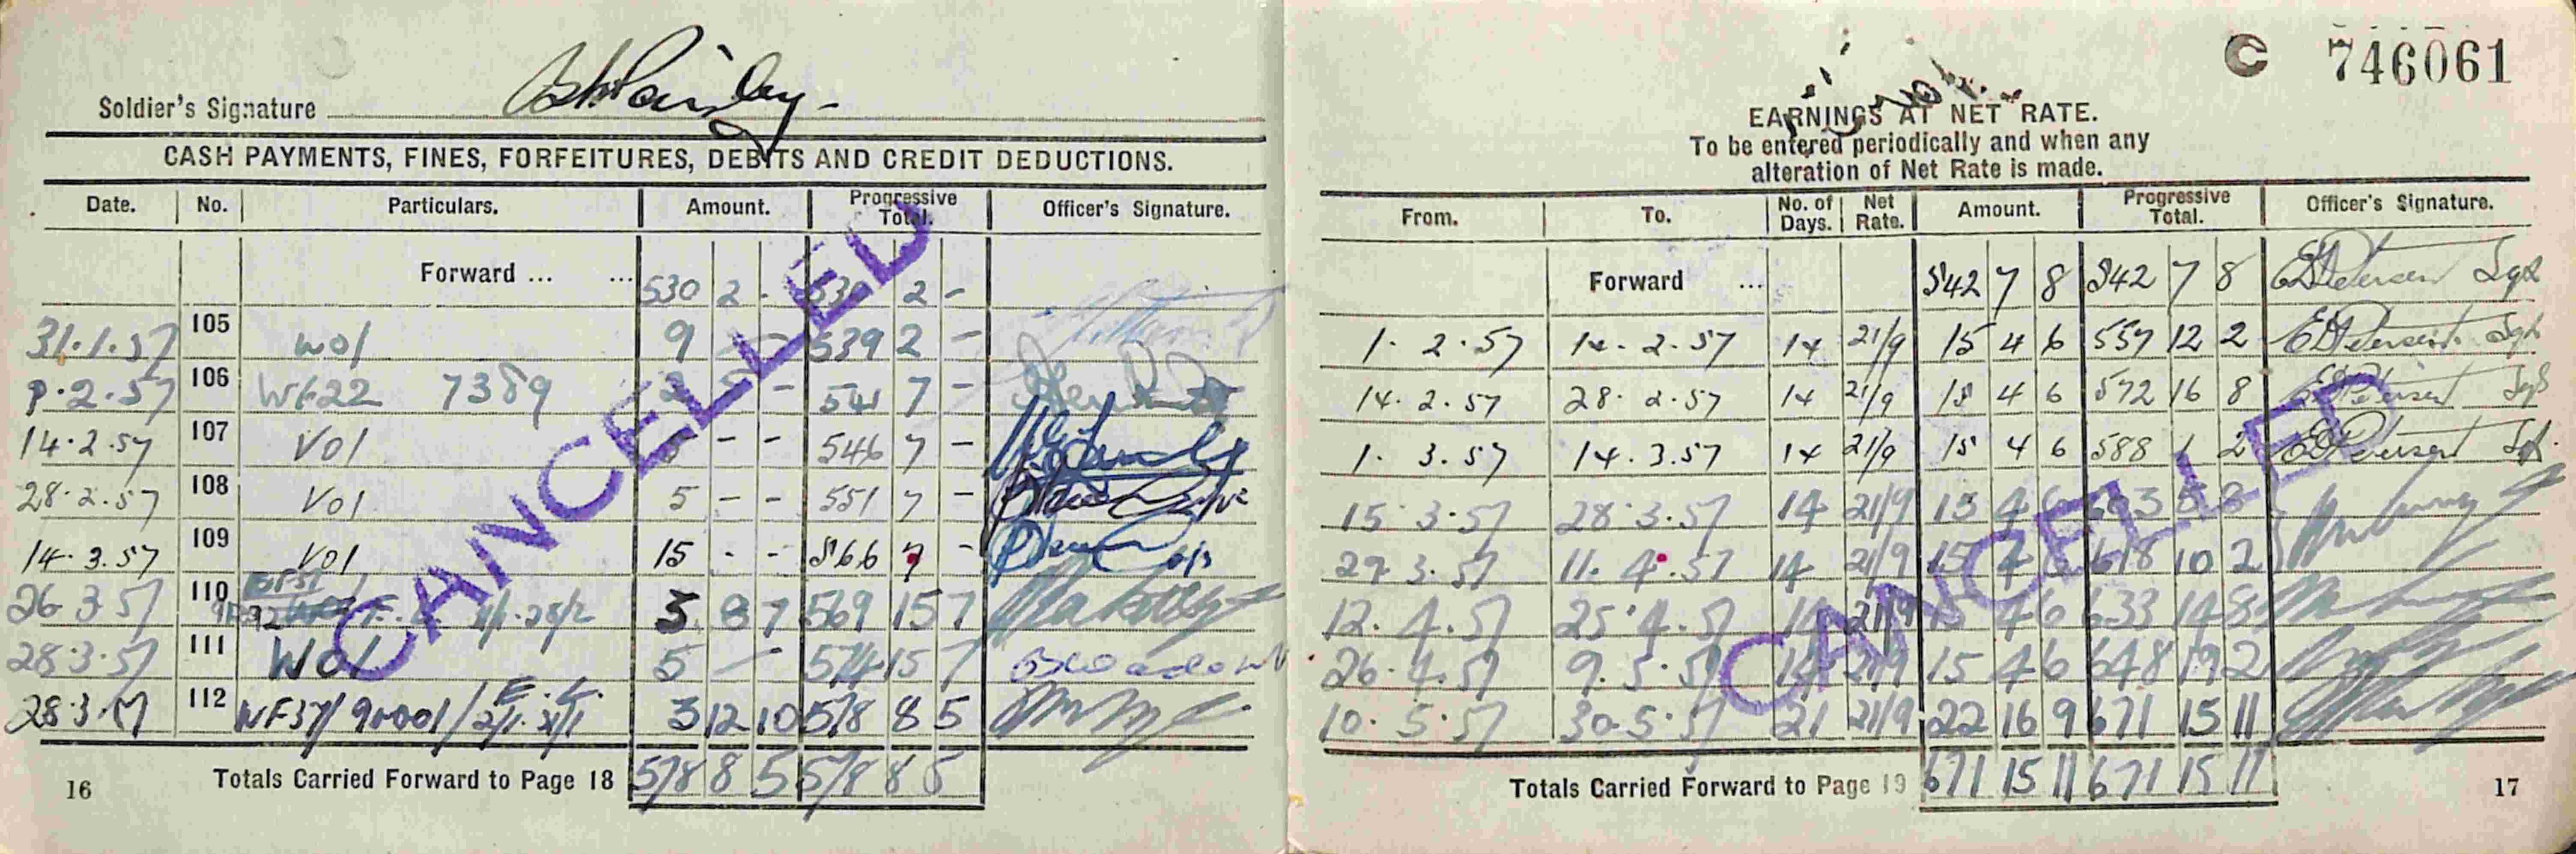 Soldier's Signature
CASH PAYMENTS, FINES, FORFEITURES, DEBITS AND CREDIT DEDUCTIONS.
Date. No. Particulars. Amount. Progressive Total. Officer's Signature.
Forward ... ... 530 2 - 530 2 -
31.1.57 105 W01 9 - - 539 2 -
106 7389 541 7 -
14.2.57 107 V01 5 - - 546 7 -
28.2.57 108 V01 5 - - 551 7 -
14.3.57 109 V01 15 - - 566 7 -
26.3.57 110 3 8 7 569 15 7
28.3.57 111 W01 5 - 574 15 7
28.3.57 112 3 12 10 578 8 5
Totals Carried Forward to Page 18 578 8 5 578 8 5
16
CANCELLED
C 746061
EARNINGS AT NET RATE.
To be entered periodically and when any
alteration of Net Rate is made.
From. To. No. of Days. Net Rate. Amount. Progressive Total. Officer's Signature.
Forward ... 542 7 8 542 7 8 Sgt
1.2.57 14.2.57 14 21/9 15 4 6 557 12 2 Sgt
14.2.57 28.2.57 14 21/9 15 4 6 572 16 8 Sgt
1.3.57 14.3.57 14 21/9 15 4 6 588 1 2 Sgt
15.3.57 28.3.57 14 21/9 15 4 6 603 5 8
29.3.57 11.4.57 14 21/9 15 4 6 618 10 2
12.4.57 25.4.57 14 21/9 15 4 6 633 14 8
26.4.57 9.5.57 14 21/9 15 4 6 648 19 2
10.5.57 30.5.57 21 21/9 22 16 9 671 15 11
Totals Carried Forward to Page 19 671 15 11 671 15 11
17
CANCELLED